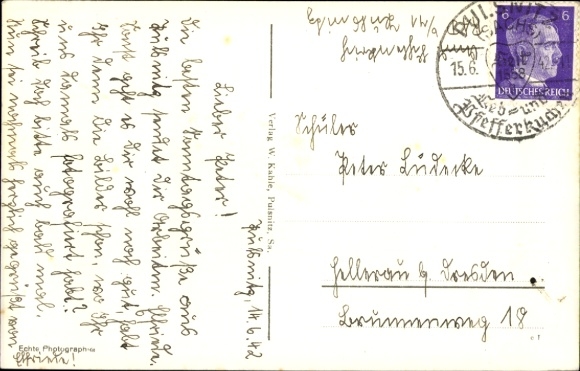 Pulsnitz, 14.6.42
Lieber Peter!
Die besten Sonntagsgrüße aus
Pulsnitz sendet Dir Elfriede.
Sonst geht es Dir wohl noch gut, habt
Ihr denn die Bilder schon, wo Ihr
uns damals fotografiert habt?
Schreib doch bitte auch bald mal.
Nun sei nochmals herzlich gegrüßt von
Elfriede!
Echte Photographie
Verlag W. Kahle, Pulsnitz, Sa.
PULSNITZ
15.6.
Pfefferkuchen
6 6
DEUTSCHES REICH
Schüler
Peter Lüdecke
Hellerau b. Dresden
Brunnenweg 18